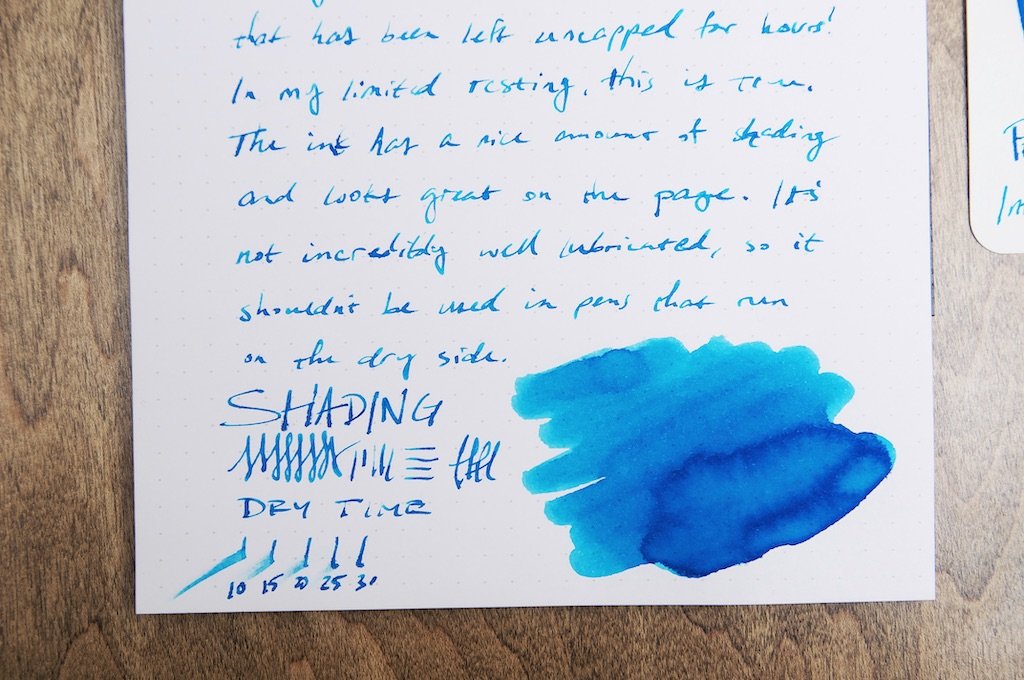 that has been left uncapped for hours!
In my limited testing, this is true.
The ink has a nice amount of shading
and looks great on the page. It's
not incredibly well lubricated, so it
shouldn't be used in pens that run
on the dry side.
SHADING
DRY TIME
10 15 20 25 30